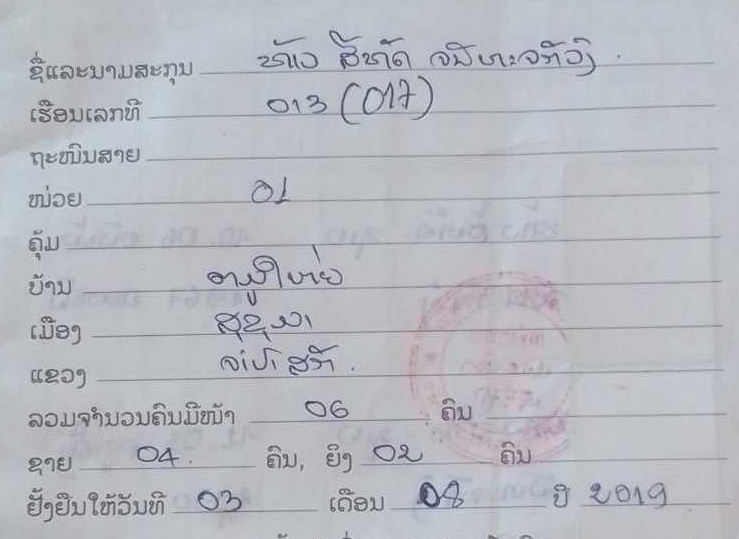 ຊື່ແລະນາມສະກຸນ ທ້າວ ສີຫາດ
ເຮືອນເລກທີ 013 (017)
ຖະໜົນສາຍ
ໜ່ວຍ 01
ຄຸ້ມ
ບ້ານ
ເມືອງ ສຸຂຸມາ
ແຂວງ ຈຳປາສັກ.
ລວມຈຳນວນຄົນມີໜ້າ 06 ຄົນ
ຊາຍ 04. ຄົນ, ຍິງ 02 ຄົນ
ຢັ້ງຢືນໃຫ້ວັນທີ 03 ເດືອນ 08 ປີ 2019